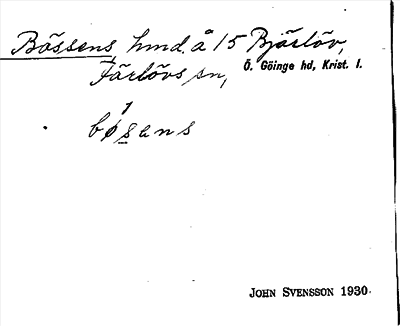 Bössens hmd. å 15 Bjärlöv,
Färlövs sn, Ö. Göinge hd, Krist. l.
bǿs̲ens
JOHN SVENSSON 1930.